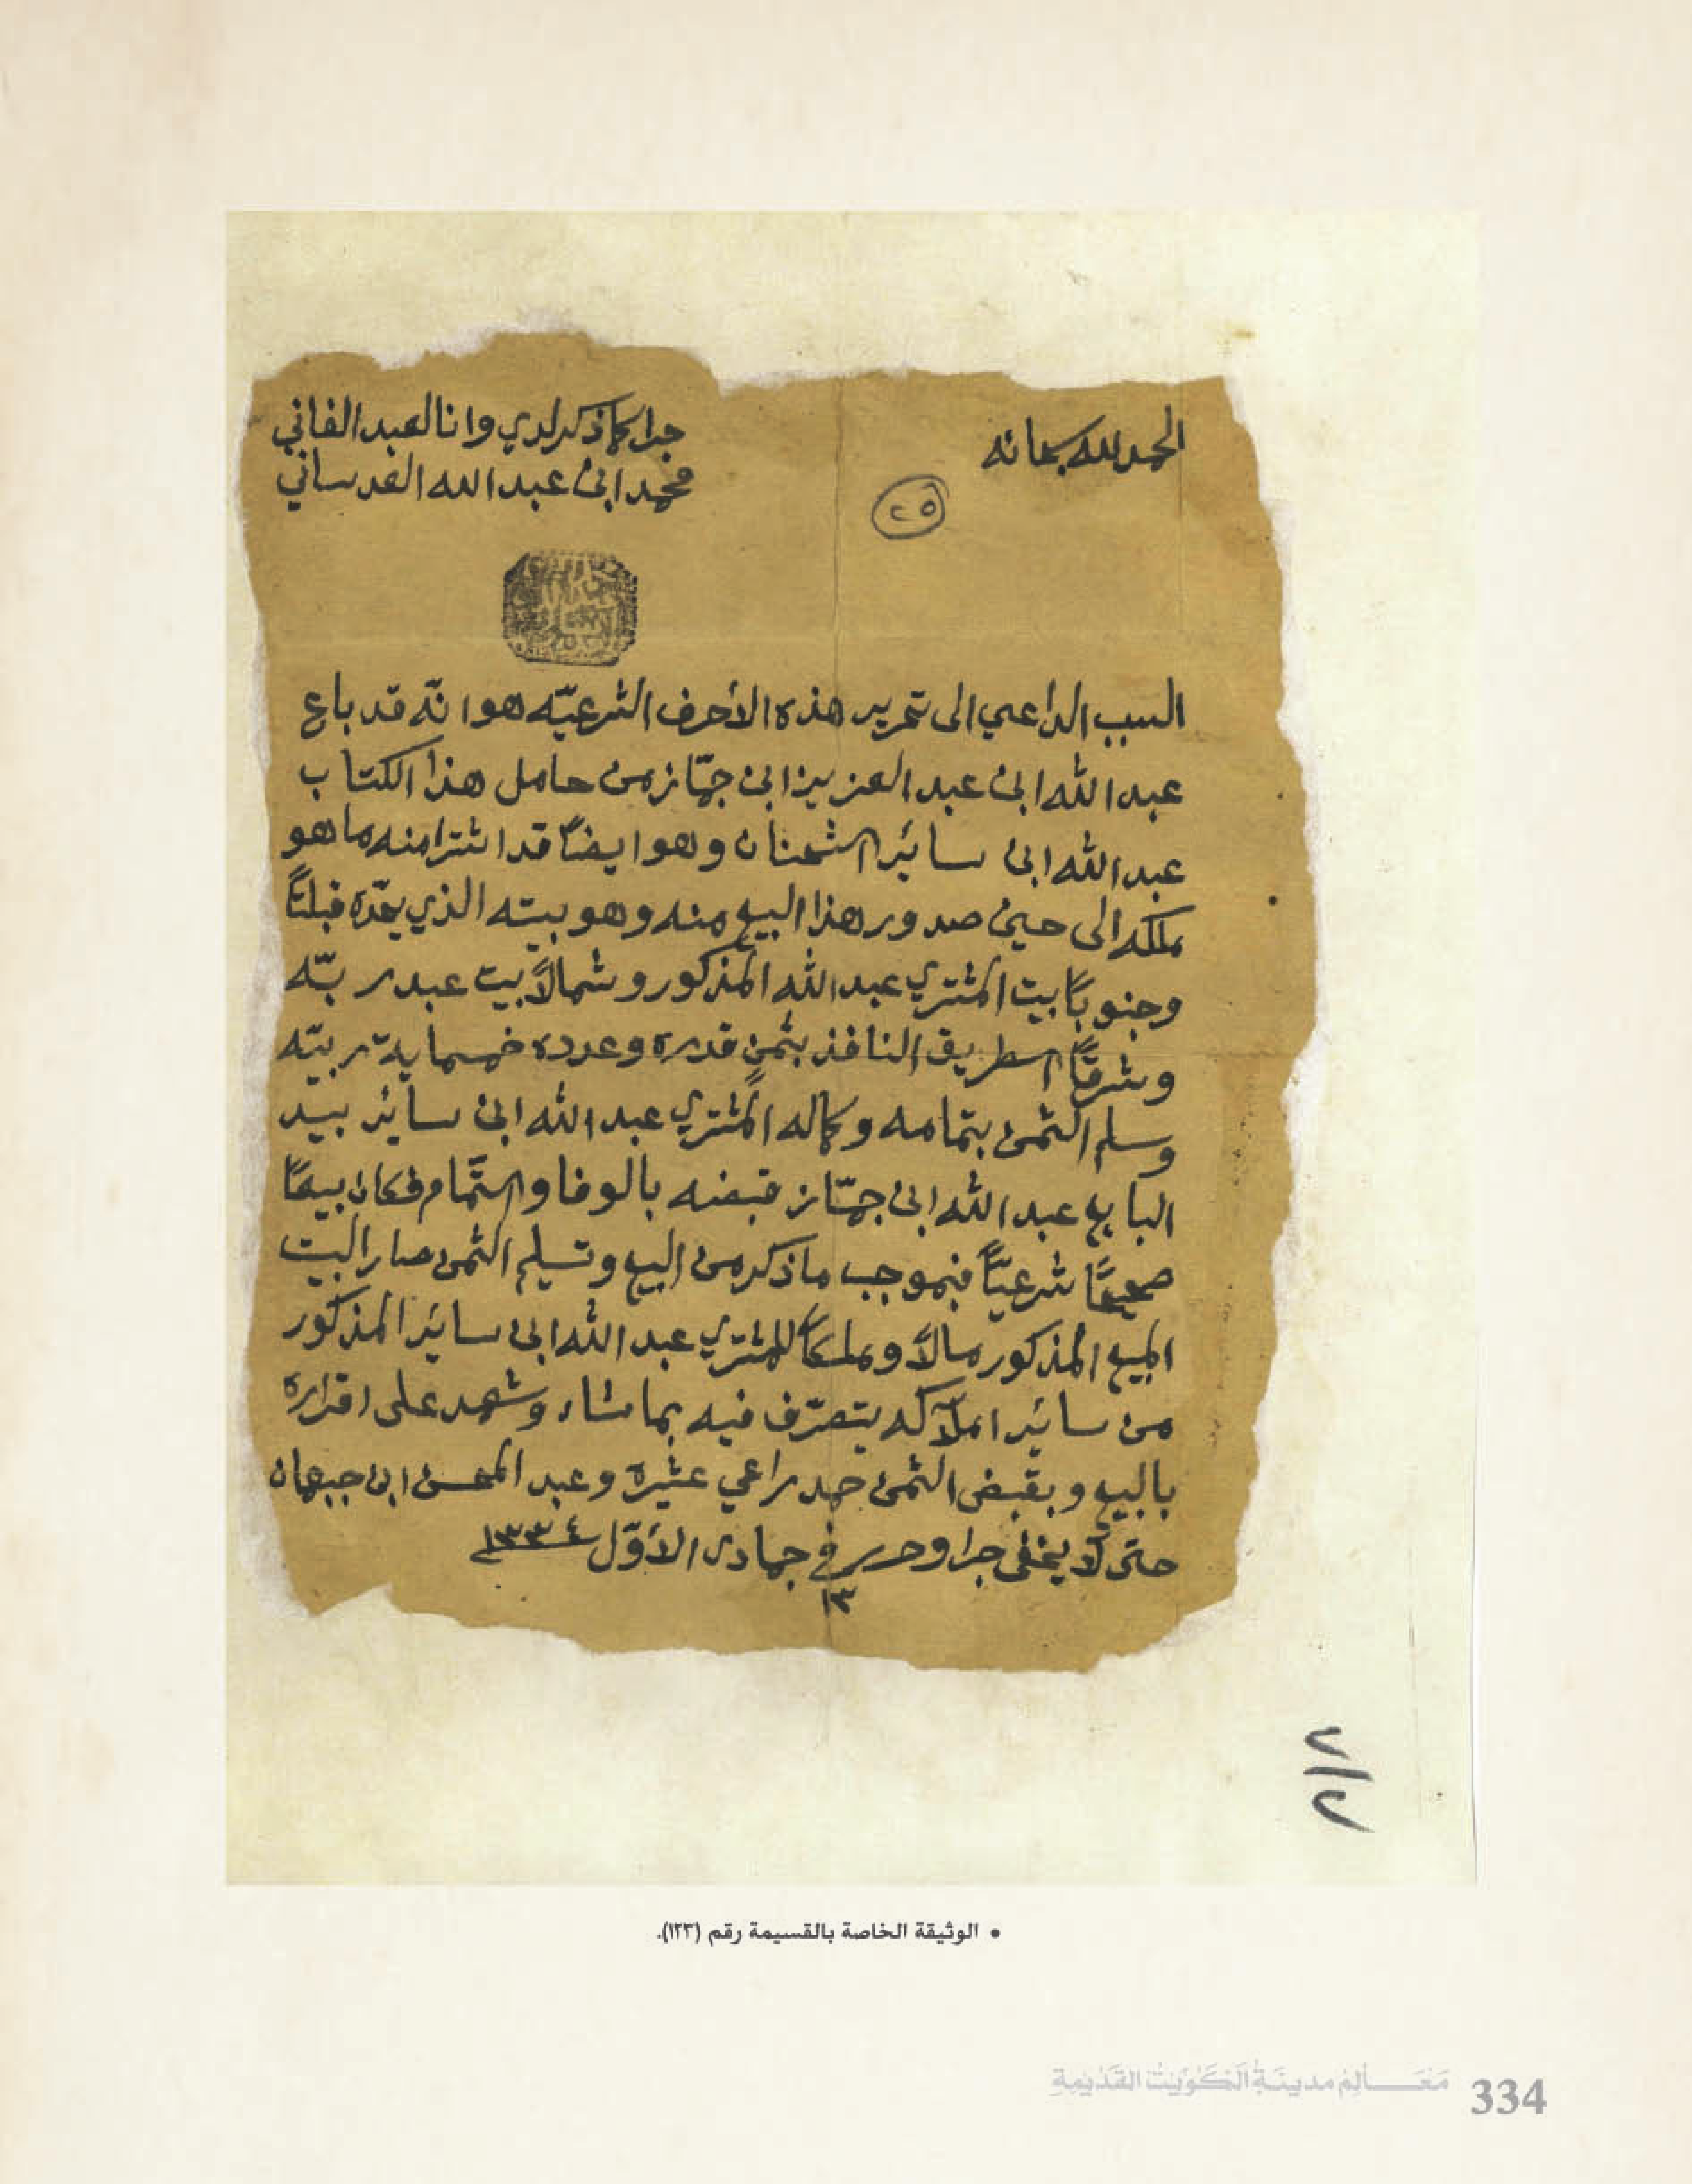 الحمد لله سبحانه
جرا كما ذكر لدي وانا العبد الفاني
محمد ابن عبد الله العدساني
٢٥
السبب الداعي الى تحرير هذه الأحرف الشرعيّه هو انّه قد باع
عبد الله ابن عبد العزيز ابن جهّاز من حامل هذا الكتاب
عبد الله ابن ساير الشحنان وهو ايضاً قد اشترا منه ما هو
ملكه الى حين صدور هذا البيع منه وهو بيته الذي يحدّه قبلتاً
وجنوباً بيت المشتري عبد الله المذكور وشمالاً بيت عبد ربّه
وشرقاً الطريق النافذ بثمنٍ قدره وعدده خمسماية ربيّه
وسلم الثمن بتمامه وكماله المشتري عبد الله ابن سائر بيد
البايع عبد الله ابن جهّاز قبضه بالوفا والتّمام فكان بيعاً
صحيحاً شرعيّاً فبموجب ما ذكر من البيع وتسليم الثمن صار البيت
المبيع المذكور مالاً وملكاً للمشتري عبد الله ابن سائر المذكور
من سائر املاكه يتصرّف فيه بما شاء وشهد على اقراره
بالبيع وبقبض الثمن حمد راعي عشيره وعبد المحسن ابن جبهان
حتى لا يخفى جرا وحرر في جمادى الأوّل ١٣٣٤
١٣
٧/٢
• الوثيقة الخاصة بالقسيمة رقم (١٢٣).
مَعَالِمُ مدينَةِ الكُوَيْتِ القَدِيمَةِ
334